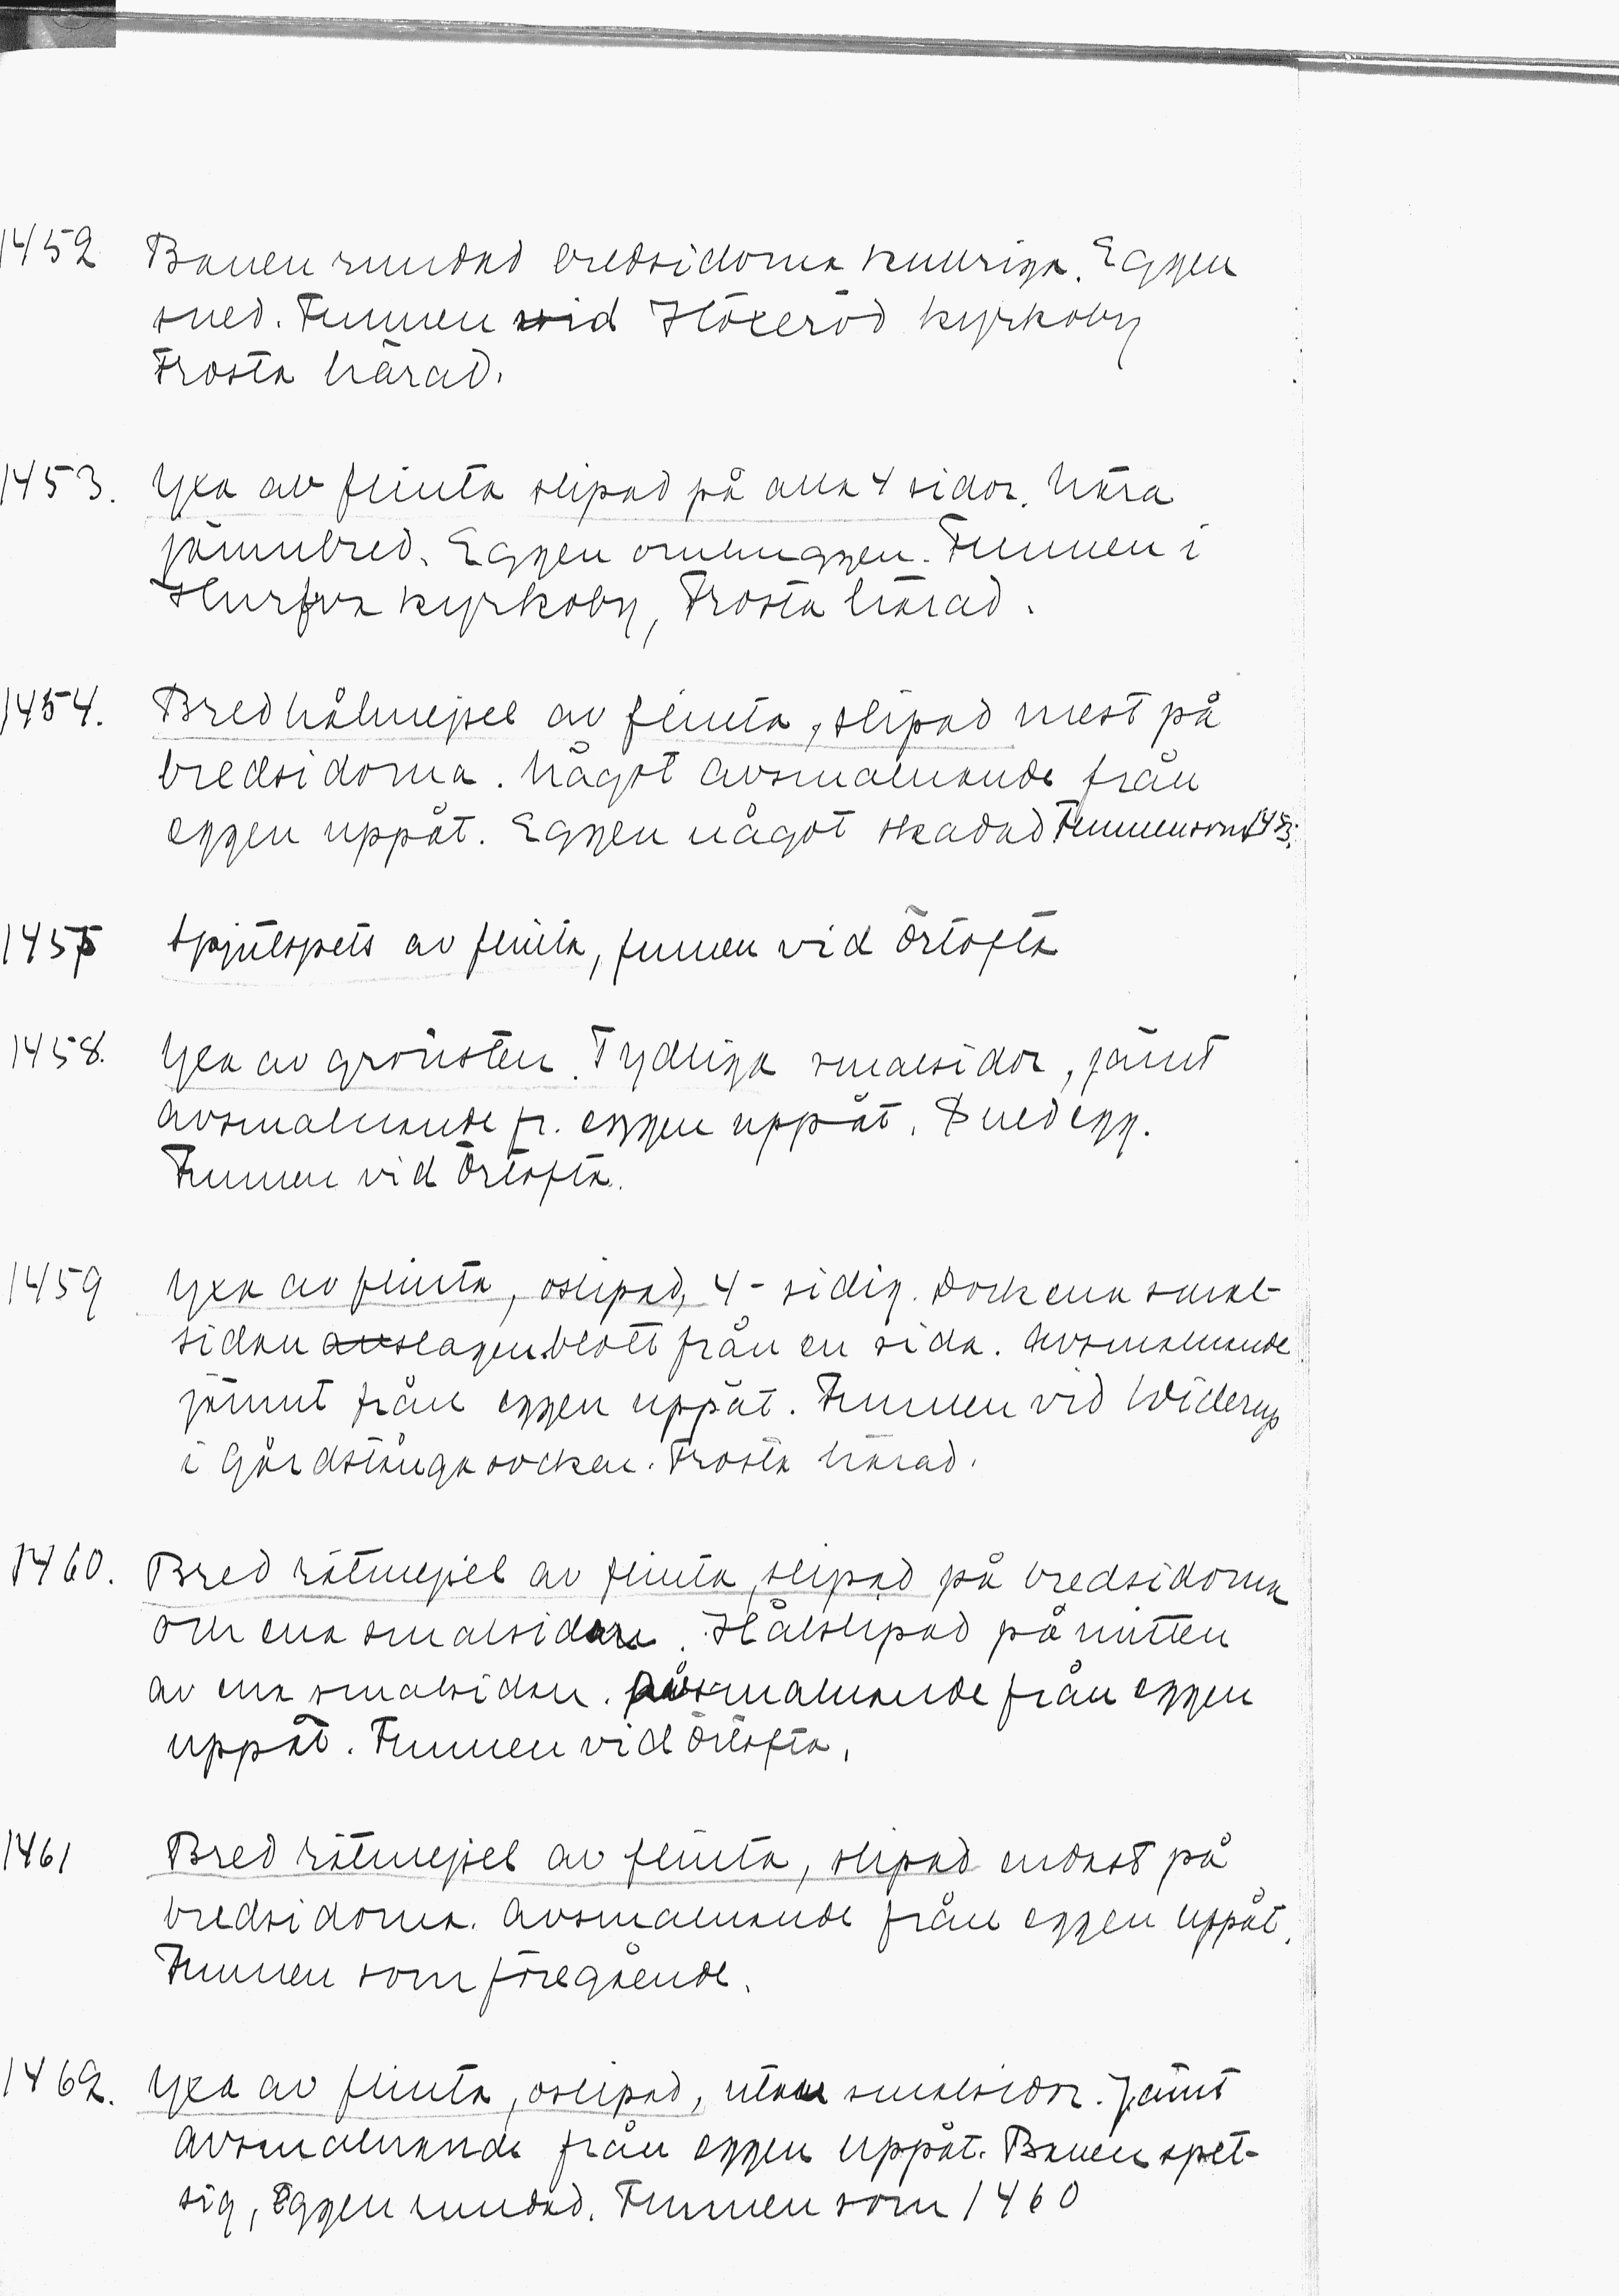 1452 Banen rundad bredsidorna knuriga. Eggen
sned. Funnen vid Höxeröd kyrkoby
Frosta härad.
1453. Yxa av flinta slipad på alla 4 sidor. Nära
jämnbred. Eggen omhuggen. Funnen i
Hurfva kyrkoby, Frosta härad.
1454. Bred hålmejsel av flinta, slipad mest på
bredsidorna. Något avsmalnande från
eggen uppåt. Eggen något skadad Funnen som 1453.
1455 Spjutspets av flinta, funnen vid Örtofta
1458. Yxa av grönsten. Tydliga smalsidor, jämt
avsmalnande fr. eggen uppåt. Sned egg.
Funnen vid Örtofta.
1459 Yxa av flinta, oslipad, 4-sidig. Dock ena smal-
sidan slagen blott från en sida. Avsmalnande
jämnt från eggen uppåt. Funnen vid Widerup
i Gårdstånga socken. Frosta härad.
1460. Bred rätmejsel av flinta, slipad på bredsidorna
och ena smalsidan. Hålslipad på mitten
av ena smalsidan. Avsmalnande från eggen
uppåt. Funnen vid Örtofta.
1461 Bred rätmejsel av flinta, slipad endast på
bredsidorna. Avsmalnande från eggen uppåt.
Funnen som föregående.
1462. Yxa av flinta, oslipad, utan smalsidor. Jämt
avsmalnande från eggen uppåt. Banen spet-
sig, Eggen rundad. Funnen som 1460